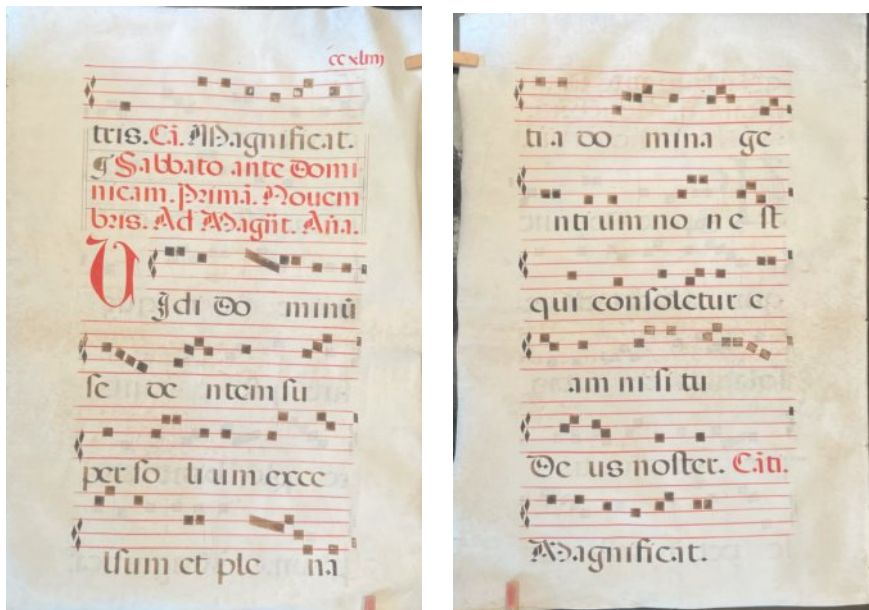 ccxliiij
tris. Cã. Magnificat.
Sabbato ante Domi
nicam. Primã. Nouem
bris. Ad Magñt. Aña.
VJdi Do minũ
se de ntem su
per so li um exce
lsum et ple na
ti a do mina ge
nti um no n e st
qui consoletur e
am ni si tu
De us noster. Cãti.
Magnificat.